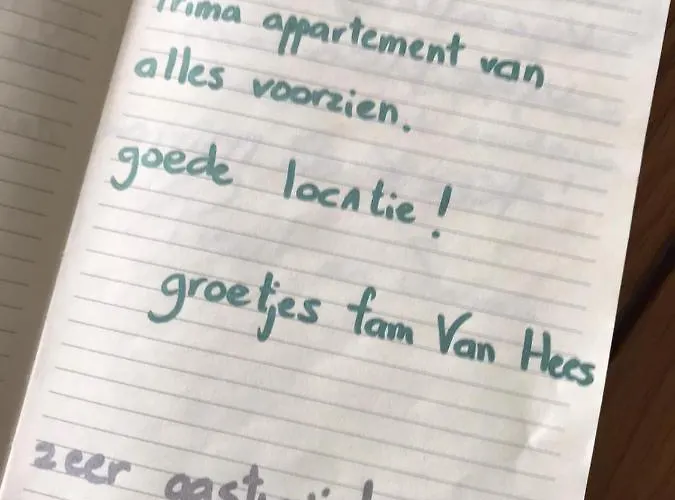 Prima appartement van
alles voorzien.
goede locatie!
groetjes fam Van Hees
zeer